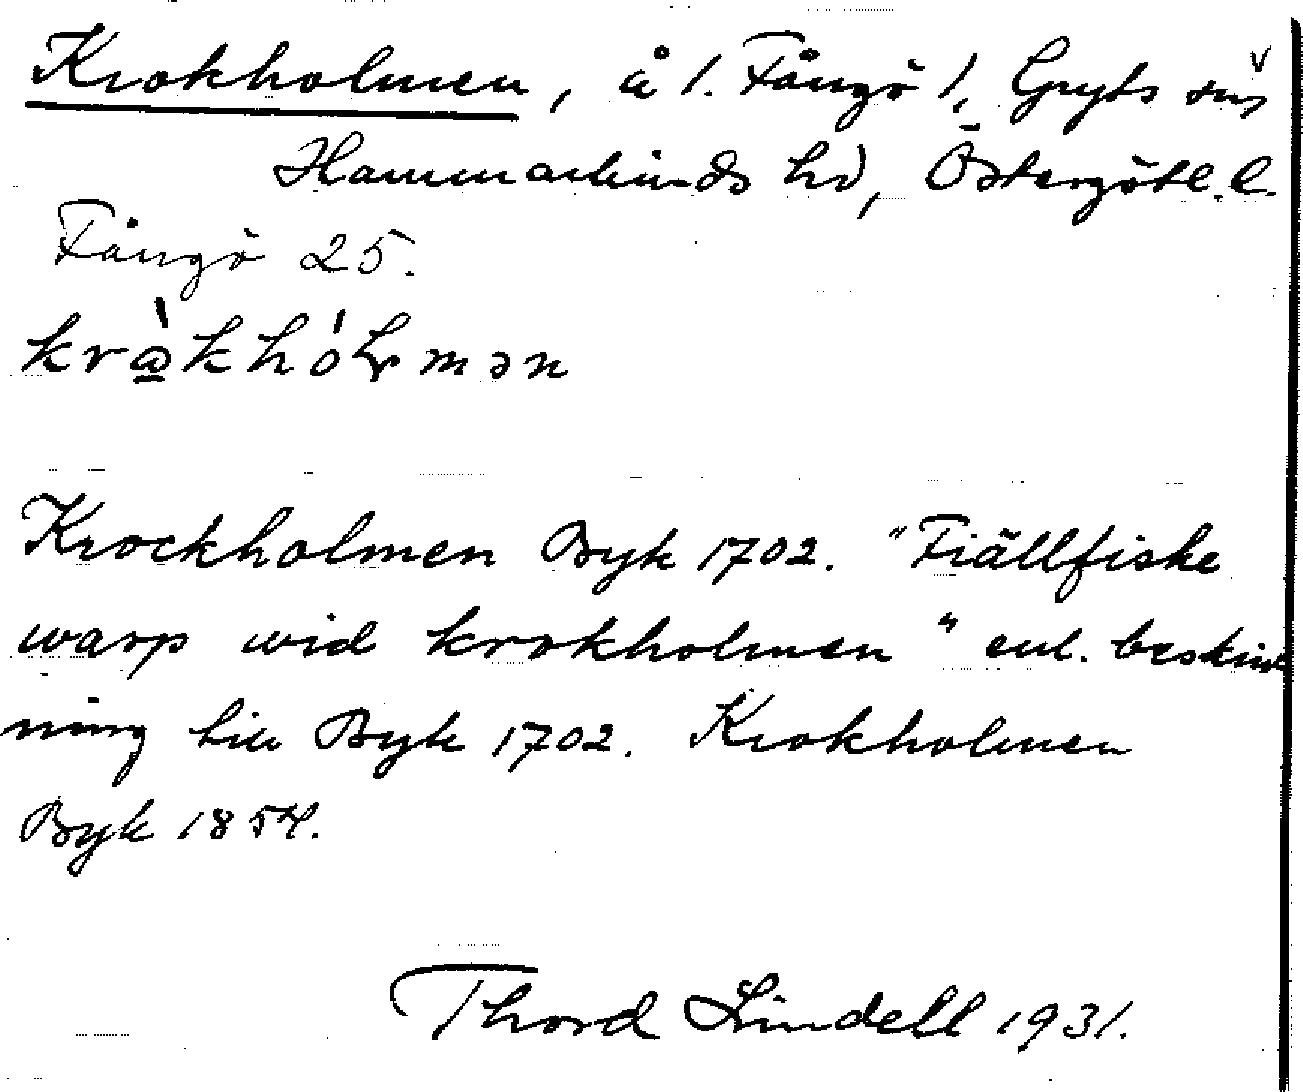 Krokholmen, ö /. Fångö /, Gryts sn
Hammarkinds hd, Östergötl. l.
Fångö 25.
Krockholmen Byk 1702. "Fiällfiske
warp wid krokholmen" enl. beskriv
ning till Byk 1702. Krokholmen
Byk 1854.
Thord Lindell 1931.